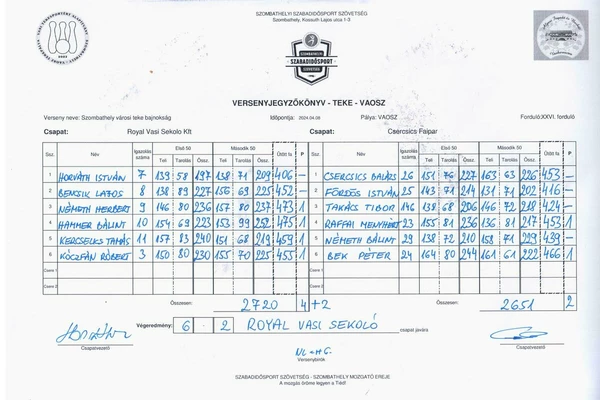 SZOMBATHELYI SZABADIDŐSPORT SZÖVETSÉG
Szombathely, Kossuth Lajos utca 1-3
SZOMBATHELYI
SZABADIDŐSPORT
SZÖVETSÉG
VERSENYJEGYZŐKÖNYV - TEKE - VAOSZ
Verseny neve: Szombathely városi teke bajnokság Időpontja: 2024.04.08 Pálya: VAOSZ Forduló: XXVI. forduló
Csapat: Royal Vasi Sekolo Kft Csapat: Csercsics Faipar
Ssz. Név Igazolás száma Első 50 Második 50 Ütött fa P Ssz. Név Igazolás száma Első 50 Második 50 Ütött fa P
Teli Tarolás Össz. Teli Tarolás Össz. Teli Tarolás Össz. Teli Tarolás Össz.
1 HORVÁTH ISTVÁN 7 139 58 197 138 71 209 406 - 1 CSERCSICS BALÁZS 26 151 76 227 163 63 226 453 -
2 BENCSIK LAJOS 8 138 89 227 156 69 225 452 - 2 FÖRDŐS ISTVÁN 25 143 71 214 131 71 202 416 -
3 NÉMETH HERBERT 9 146 80 236 157 80 237 473 1 3 TAKÁCS TIBOR 146 138 68 206 146 72 218 424 -
4 HAMMER BÁLINT 10 154 69 223 153 99 252 475 1 4 RAFFAI MENYHÉRT 23 155 81 236 136 81 217 453 1
5 KERCSELICS TAMÁS 11 157 83 240 151 68 219 459 1 5 NÉMETH BÁLINT 29 138 72 210 158 71 229 439 -
6 KÓCZÁN RÓBERT 3 150 80 230 155 70 225 455 1 6 BEK PÉTER 24 164 80 244 161 61 222 466 1
Csere 1 Csere 1
Csere 2 Csere 2
Összesen: 2720 4 +2 Összesen: 2651 2
Végeredmény: 6 - 2 ROYAL VASI SEKOLÓ csapat javára
Csapatvezető Csapatvezető
Versenybírók
SZABADIDŐSPORT SZÖVETSÉG - SZOMBATHELY MOZGATÓ EREJE
A mozgás öröme legyen a Tiéd!